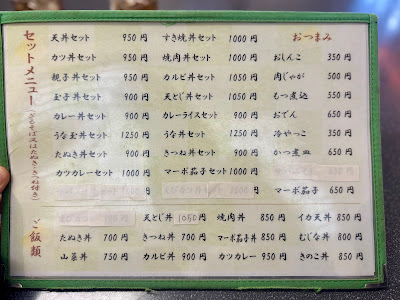 セットメニュー
（ざるそば又はたぬき・きつね付き）
天丼セット 950円
カツ丼セット 950円
親子丼セット 950円
玉子丼セット 900円
カレー丼セット 900円
うな玉丼セット 1250円
たぬき丼セット 900円
カツカレーセット 1000円
すき焼丼セット 1000円
焼肉丼セット 1000円
カルビ丼セット 1050円
天とじ丼セット 1050円
カレーライスセット 900円
うな丼セット 1250円
きつね丼セット 900円
マーボ茄子セット 1000円
おつまみ
おしんこ 350円
肉じゃが 500円
もつ煮込 550円
おでん 650円
冷やっこ 350円
かつ煮皿 650円
マーボ茄子 650円
ご飯類
天とじ丼 1050円 焼肉丼 850円 イカ天丼 850円
たぬき丼 700円 きつね丼 700円 マーボ茄子丼 850円 むじな丼 800円
山菜丼 750円 カルビ丼 900円 カツカレー 950円 きのこ丼 850円